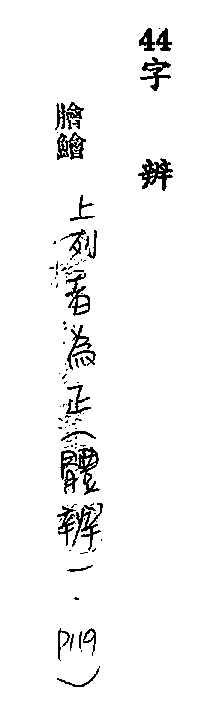 44字辨
膾鱠
上列者為正(體辨一.P119)